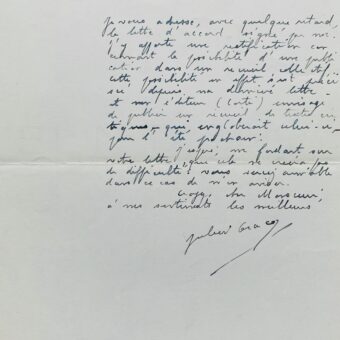 je vous adresse, avec quelque retard,
la lettre d'accord signée par moi.
J'y apporte une rectification con
cernant la possibilité d'une publi
cation dans un recueil collectif
cette possibilité en effet s'est préci
sée depuis ma dernière lettre
et mon éditeur (Corti) envisage
de publier un recueil de textes cri
tiques, qui engloberait celui-ci,
pour l'été prochain.
J'espère, me fondant sur
votre lettre, que cela ne créera pas
de difficultés. Vous seriez aimable
dans ce cas de m'en aviser.
Croyez, cher Monsieur,
à mes sentiments les meilleurs
Julien Gracq